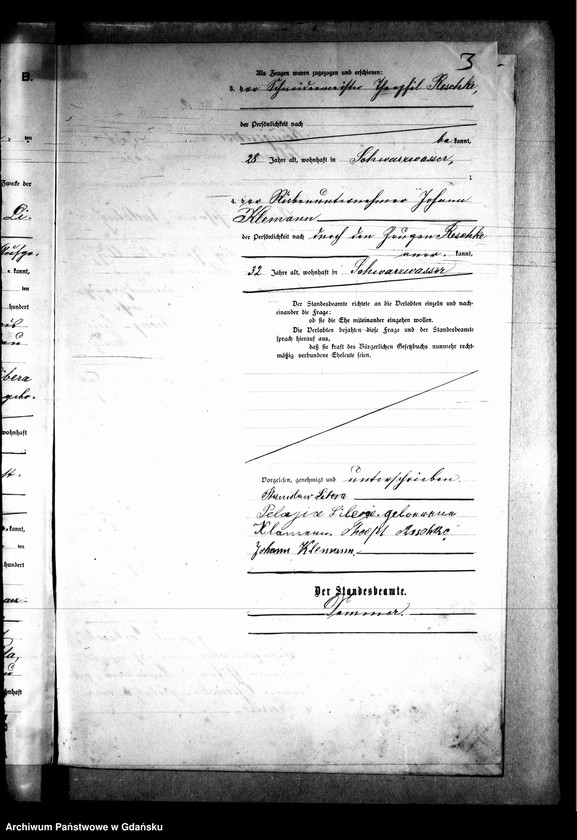 3
B.
Als Zeugen waren zugezogen und erschienen:
3. der Schneidermeister Theophil Reschke,
der Persönlichkeit nach
be kannt,
28 Jahre alt, wohnhaft in Schwarzwasser,
;
4. der Rübenunternehmer Johann
Klemann
der Persönlichkeit nach durch den Zeugen Reschke
aner. kannt,
32 Jahre alt, wohnhaft in Schwarzwasser
Der Standesbeamte richtete an die Verlobten einzeln und nach-
einander die Frage:
ob sie die Ehe miteinander eingehen wollen.
Die Verlobten bejahten diese Frage und der Standesbeamte
sprach hierauf aus,
daß sie kraft des Bürgerlichen Gesetzbuchs nunmehr recht-
mäßig verbundene Eheleute seien.
Vorgelesen, genehmigt und unterschrieben
Stanislaw Libera
Pelagia Libera geborene
Klamann. Theofil Reschke
Johann Klemann
Der Standesbeamte.
ten
Zwecke der
Li
kannt,
ten
hundert
libera
gebo.
wohnhaft
;
kannt,
ten
hundert
wohnhaft
Archiwum Państwowe w Gdańsku